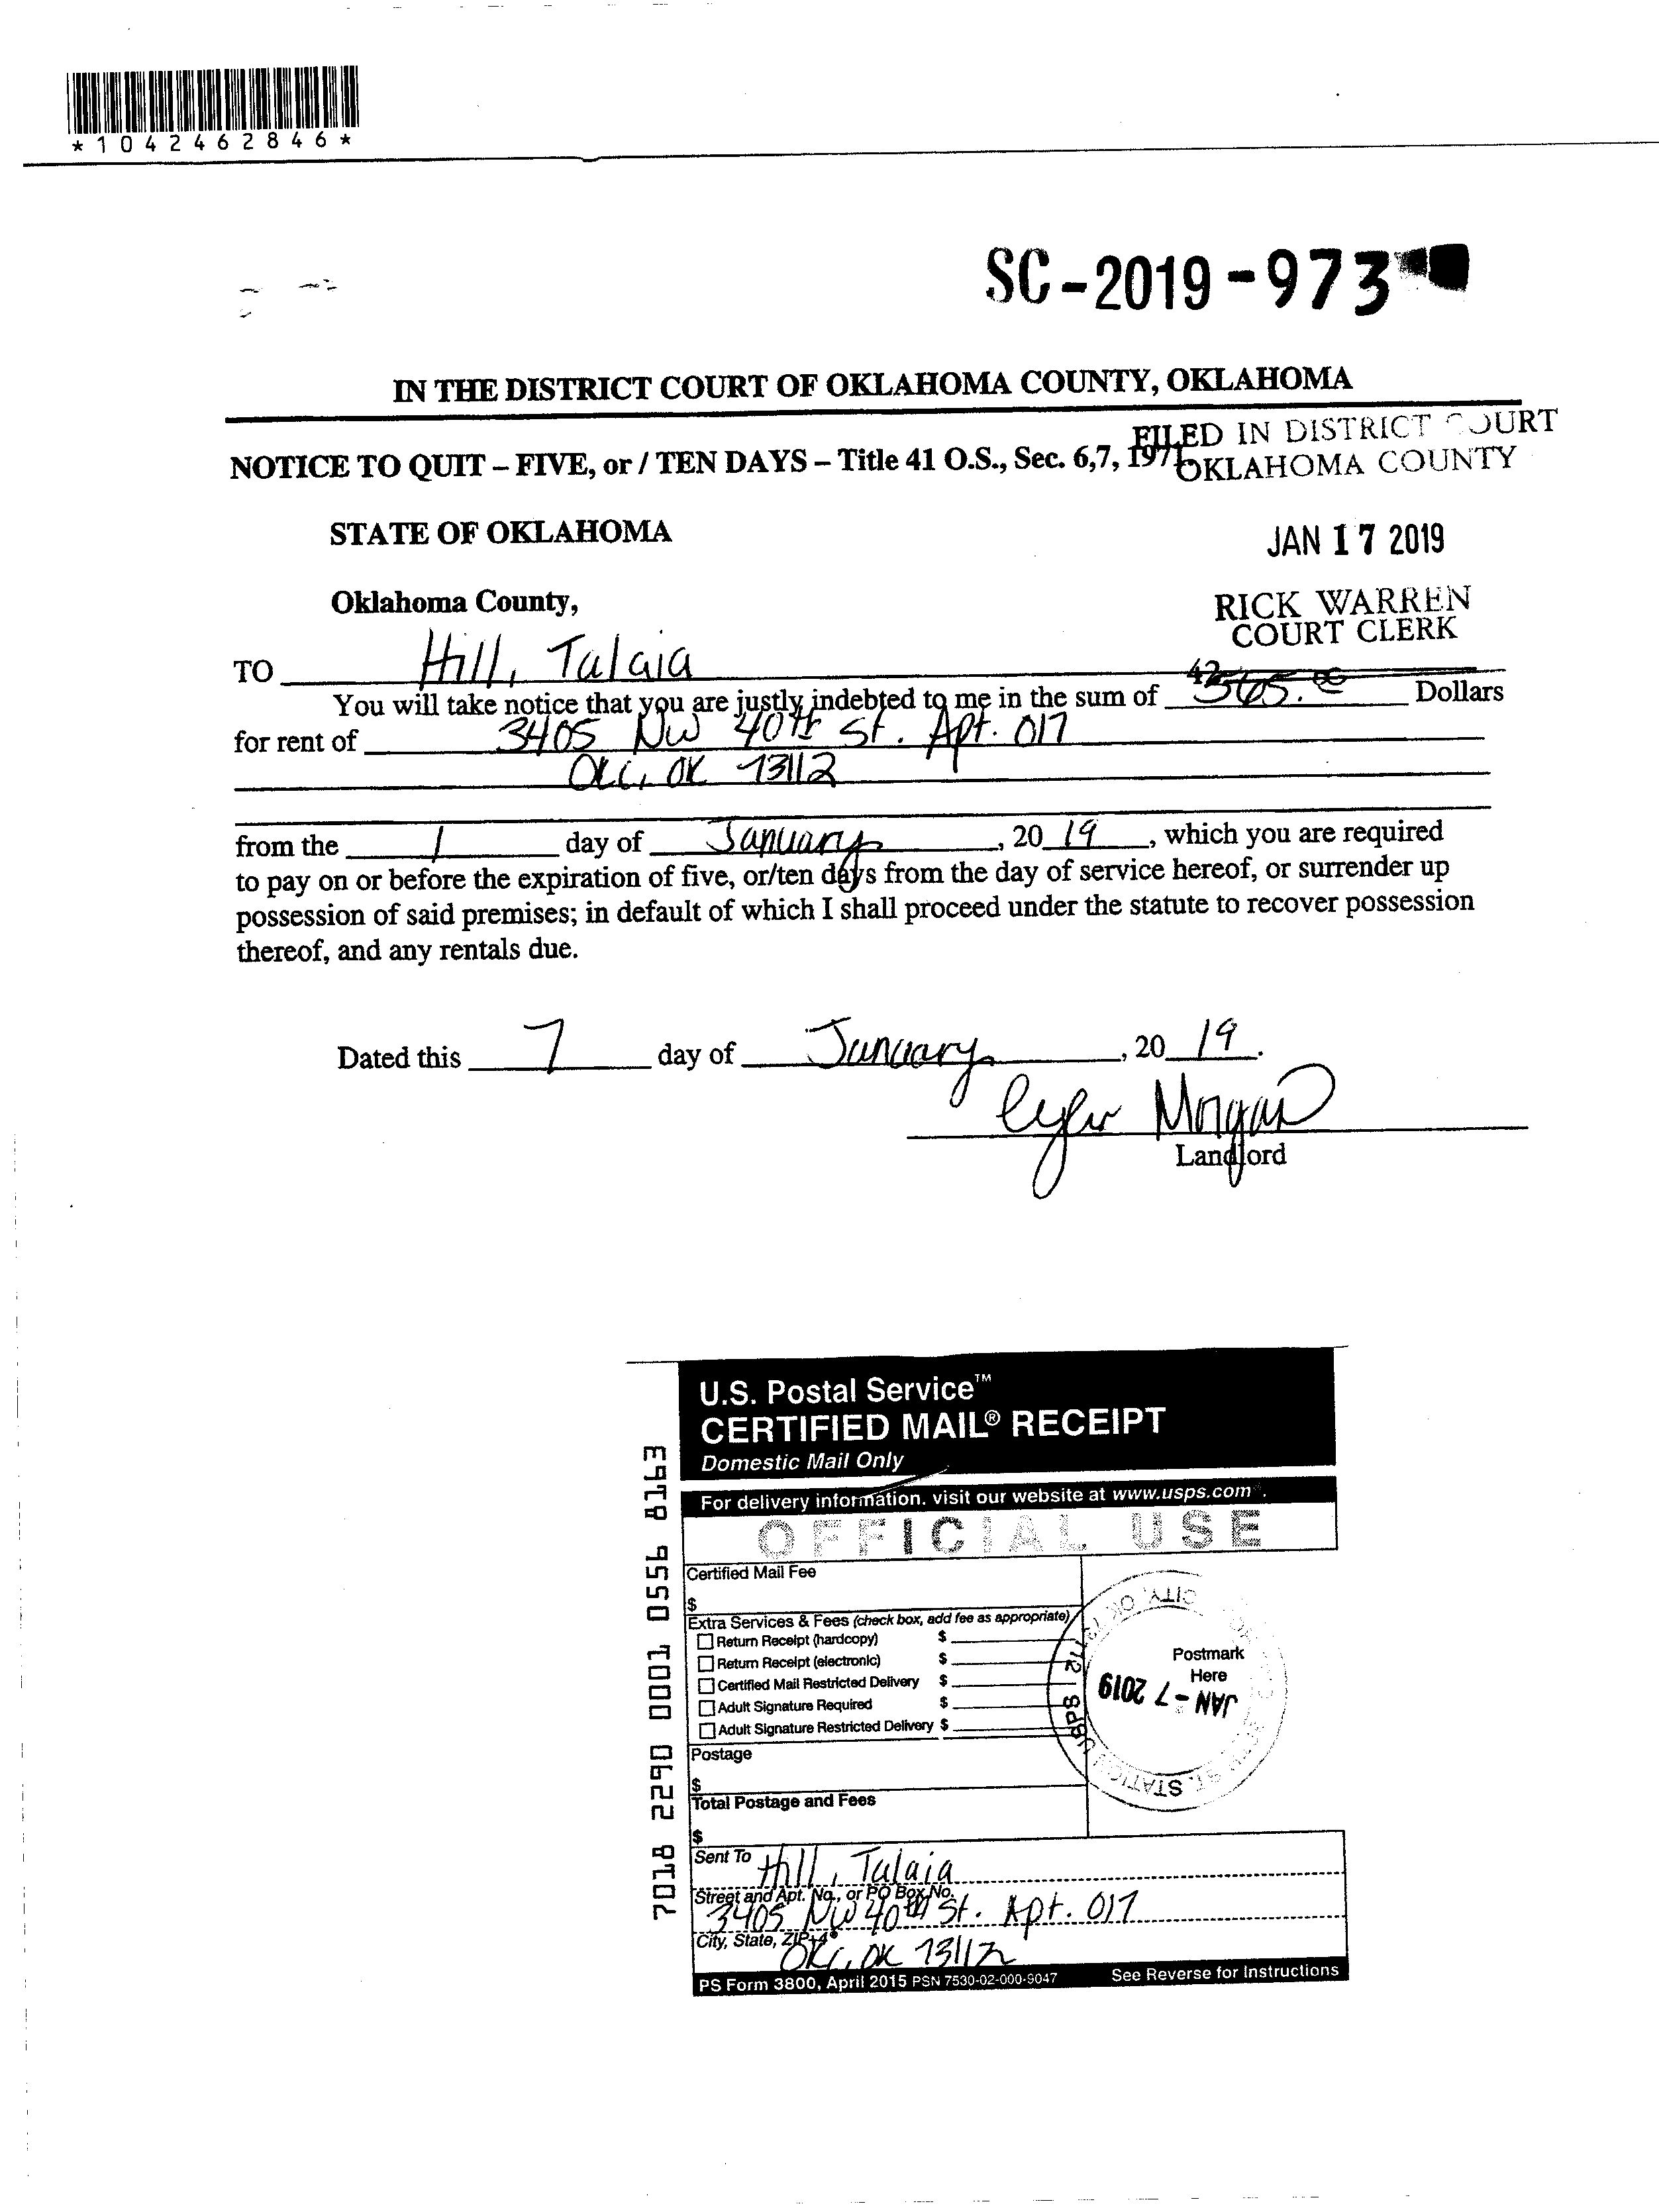 *1042462846*
SC-2019-973
IN THE DISTRICT COURT OF OKLAHOMA COUNTY, OKLAHOMA
NOTICE TO QUIT – FIVE, or / TEN DAYS – Title 41 O.S., Sec. 6,7, 1971
FILED IN DISTRICT COURT
OKLAHOMA COUNTY
STATE OF OKLAHOMA
JAN 17 2019
Oklahoma County,
RICK WARREN
COURT CLERK
TO Hill, Talaia
You will take notice that you are justly indebted to me in the sum of 565.00 Dollars
for rent of 3405 NW 40th St. Apt. 017
OKC, OK 73112
from the 1 day of January, 2019, which you are required
to pay on or before the expiration of five, or/ten days from the day of service hereof, or surrender up
possession of said premises; in default of which I shall proceed under the statute to recover possession
thereof, and any rentals due.
Dated this 7 day of January, 20 19.
Morgan
Landlord
U.S. Postal Service™
CERTIFIED MAIL® RECEIPT
Domestic Mail Only
For delivery information, visit our website at www.usps.com®.
OFFICIAL USE
7018 2290 0001 0556 8163
Certified Mail Fee
$
Extra Services & Fees (check box, add fee as appropriate)
Return Receipt (hardcopy) $
Return Receipt (electronic) $
Certified Mail Restricted Delivery $
Adult Signature Required $
Adult Signature Restricted Delivery $
Postmark
Here
JAN -7 2019
CITY, OK 73112
USPS
STATION
Postage
$
Total Postage and Fees
$
Sent To Hill, Talaia
Street and Apt. No., or PO Box No.
3405 NW 40th St. Apt. 017
City, State, ZIP+4®
OKC, OK 73112
PS Form 3800, April 2015 PSN 7530-02-000-9047 See Reverse for Instructions